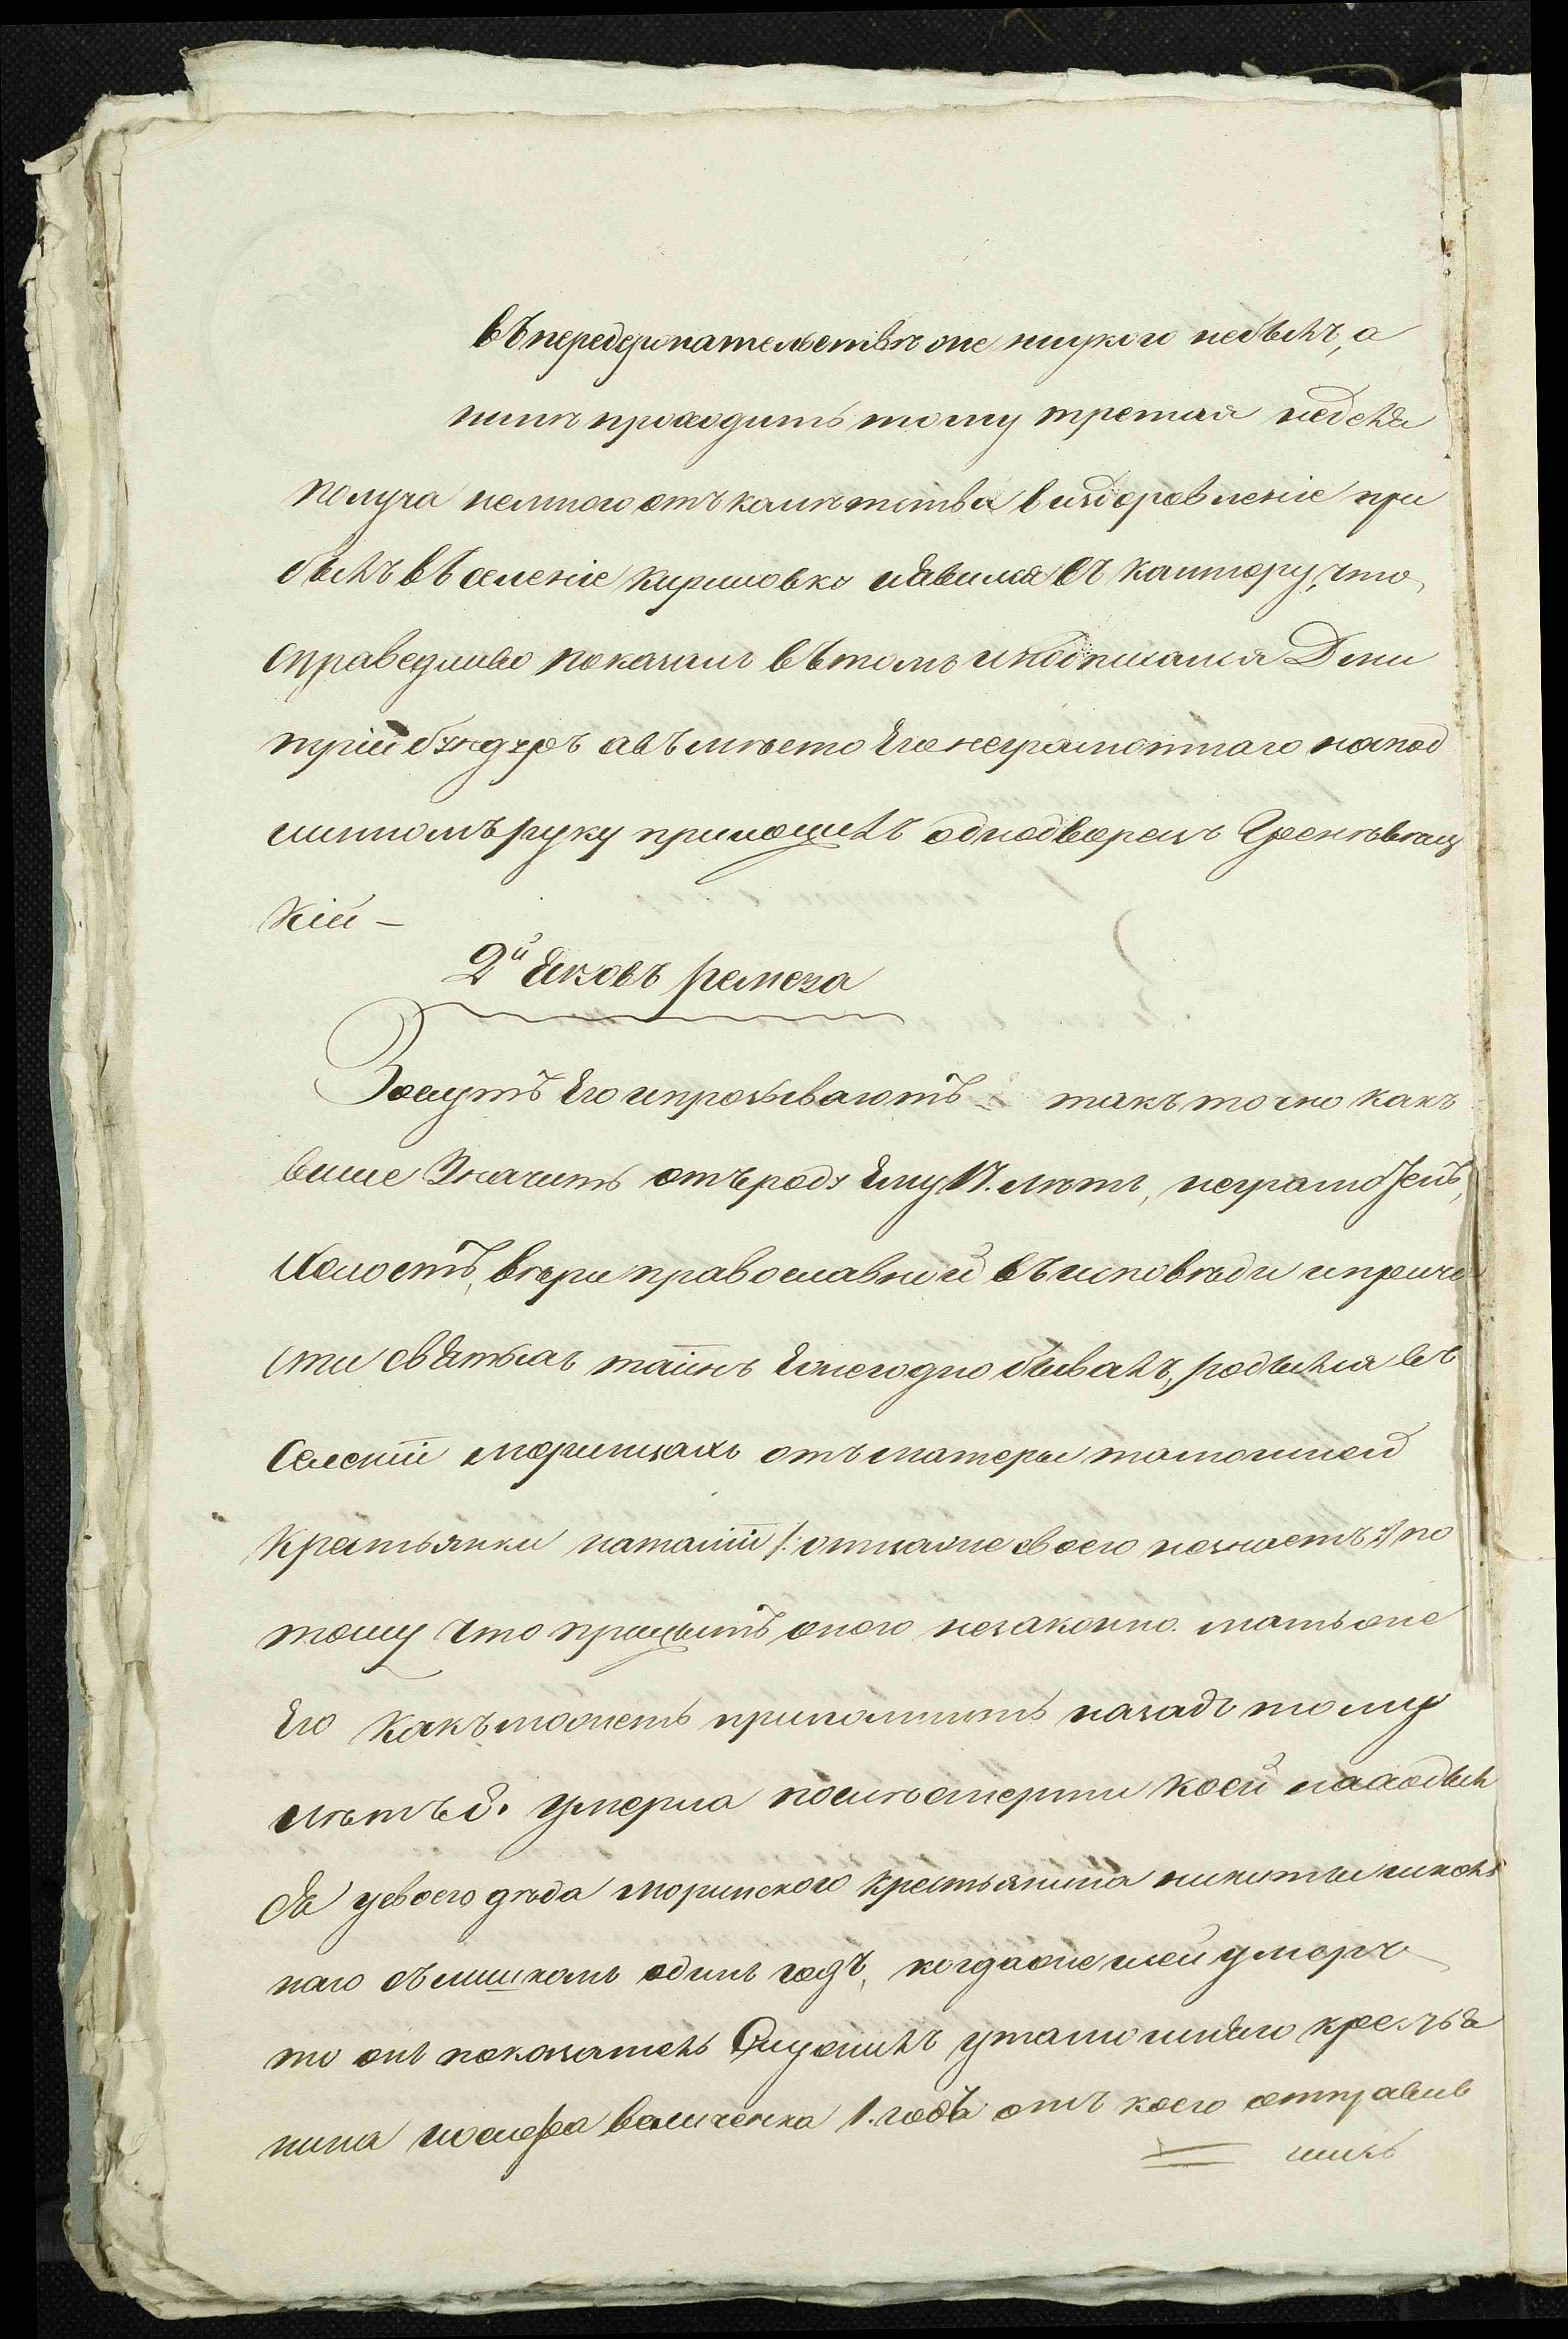 въ передержательствѣ же ни укого небылъ, а
нинѣ проходитъ тому третая неделя
получа немного отъ каликтства виздоровленіе при
былъ въ селеніе Кириловку иявился въ кантору, что
справедливо показалъ вътомъ иподписался Дми
трій бундуръ авъмѣсто Его неграмотнаго напод
линномъ руку приложилъ однодворецъ
кій –
2й Яковъ ремеза
Зовутъ Его ипрозываютъ такъ точно какъ
више Значитъ отъ роду Ему 17. лѣтъ, неграмотенъ,
Холостъ, вѣри православной въ исповѣди и причи
сти святыхъ таинъ Ежегодно бывалъ, родылся въ
Селеніи Моринцахъ отъ матеры тамошней
крестьянки наталіи /: отца же своего незнаетъ :/ по
тому что прижытъ оного незаконно. мать же
Его какъ можетъ припомнить назадъ тому
лѣтъ 8. умерла послѣ смерти коей находыл
ся усвоего дѣда моринского крестьянина никиты
наго слишкомъ одинъ годъ, когда же исей умеръ
то онъ показатель Служилъ утамошняго крестья
нина иосифа величенка 1. годъ отъ коего отправив
шись